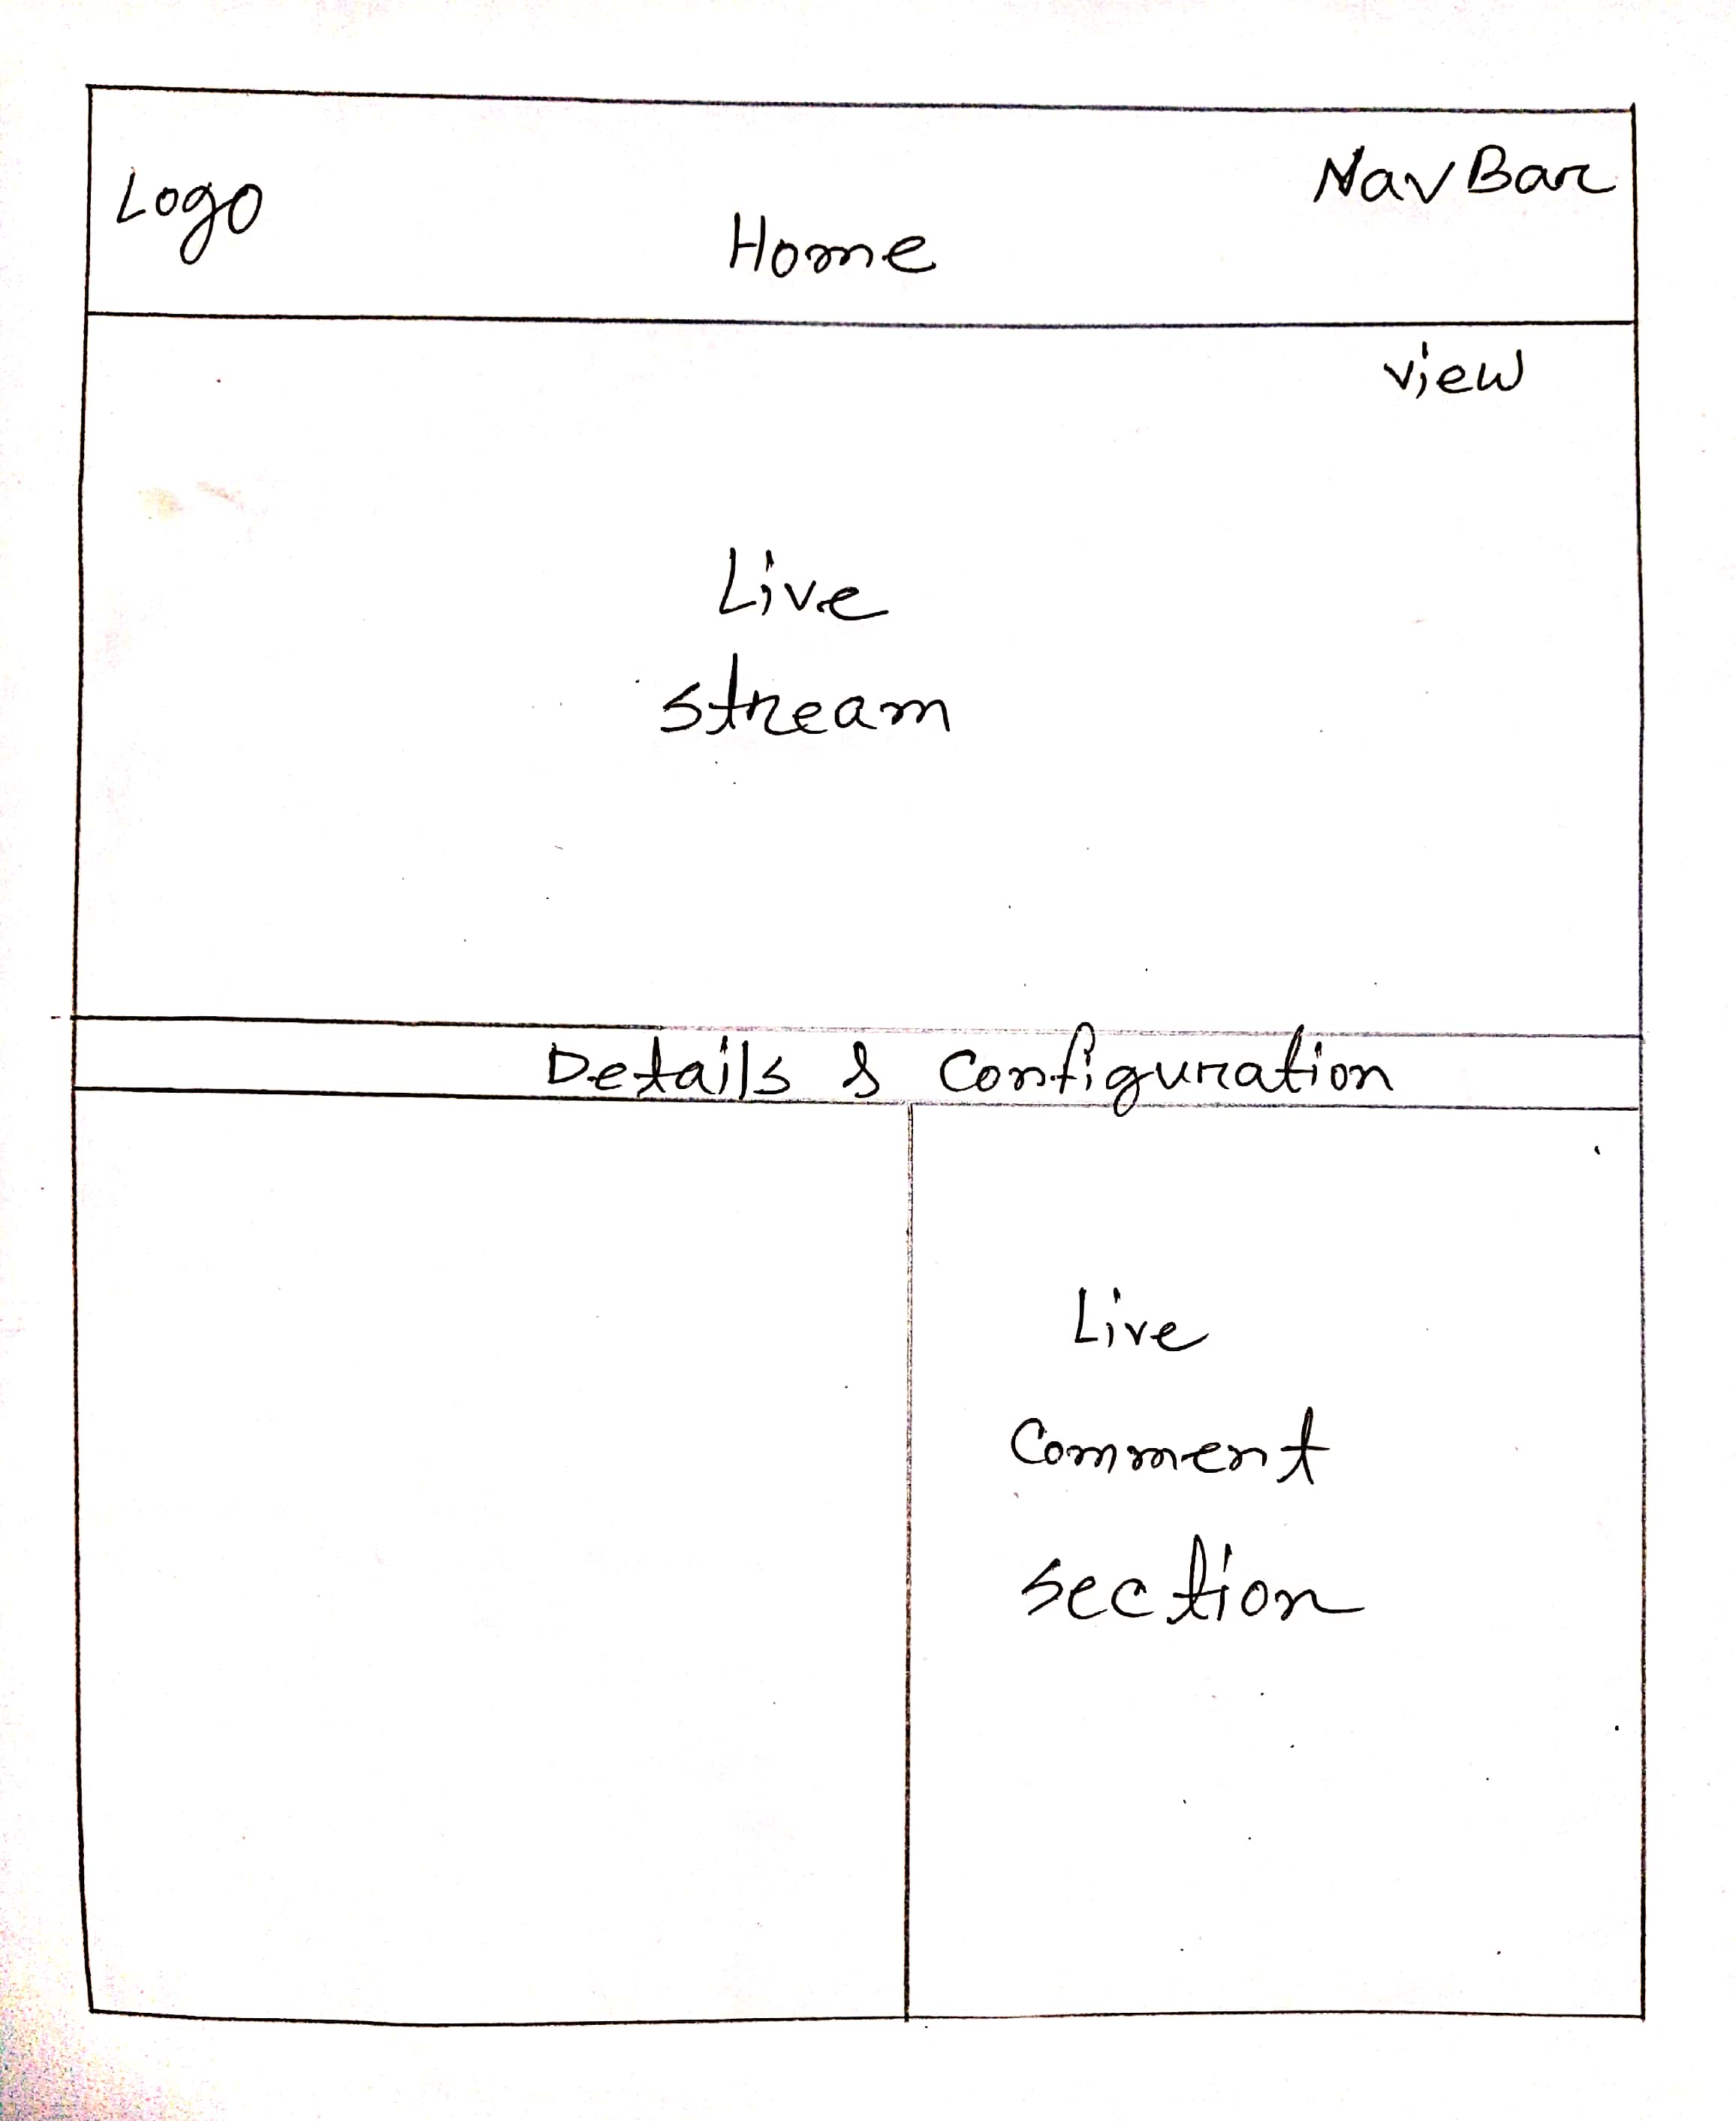 Logo
Home
Nav Bar
view
Live
stream
Details & Configuration
Live
Comment
section